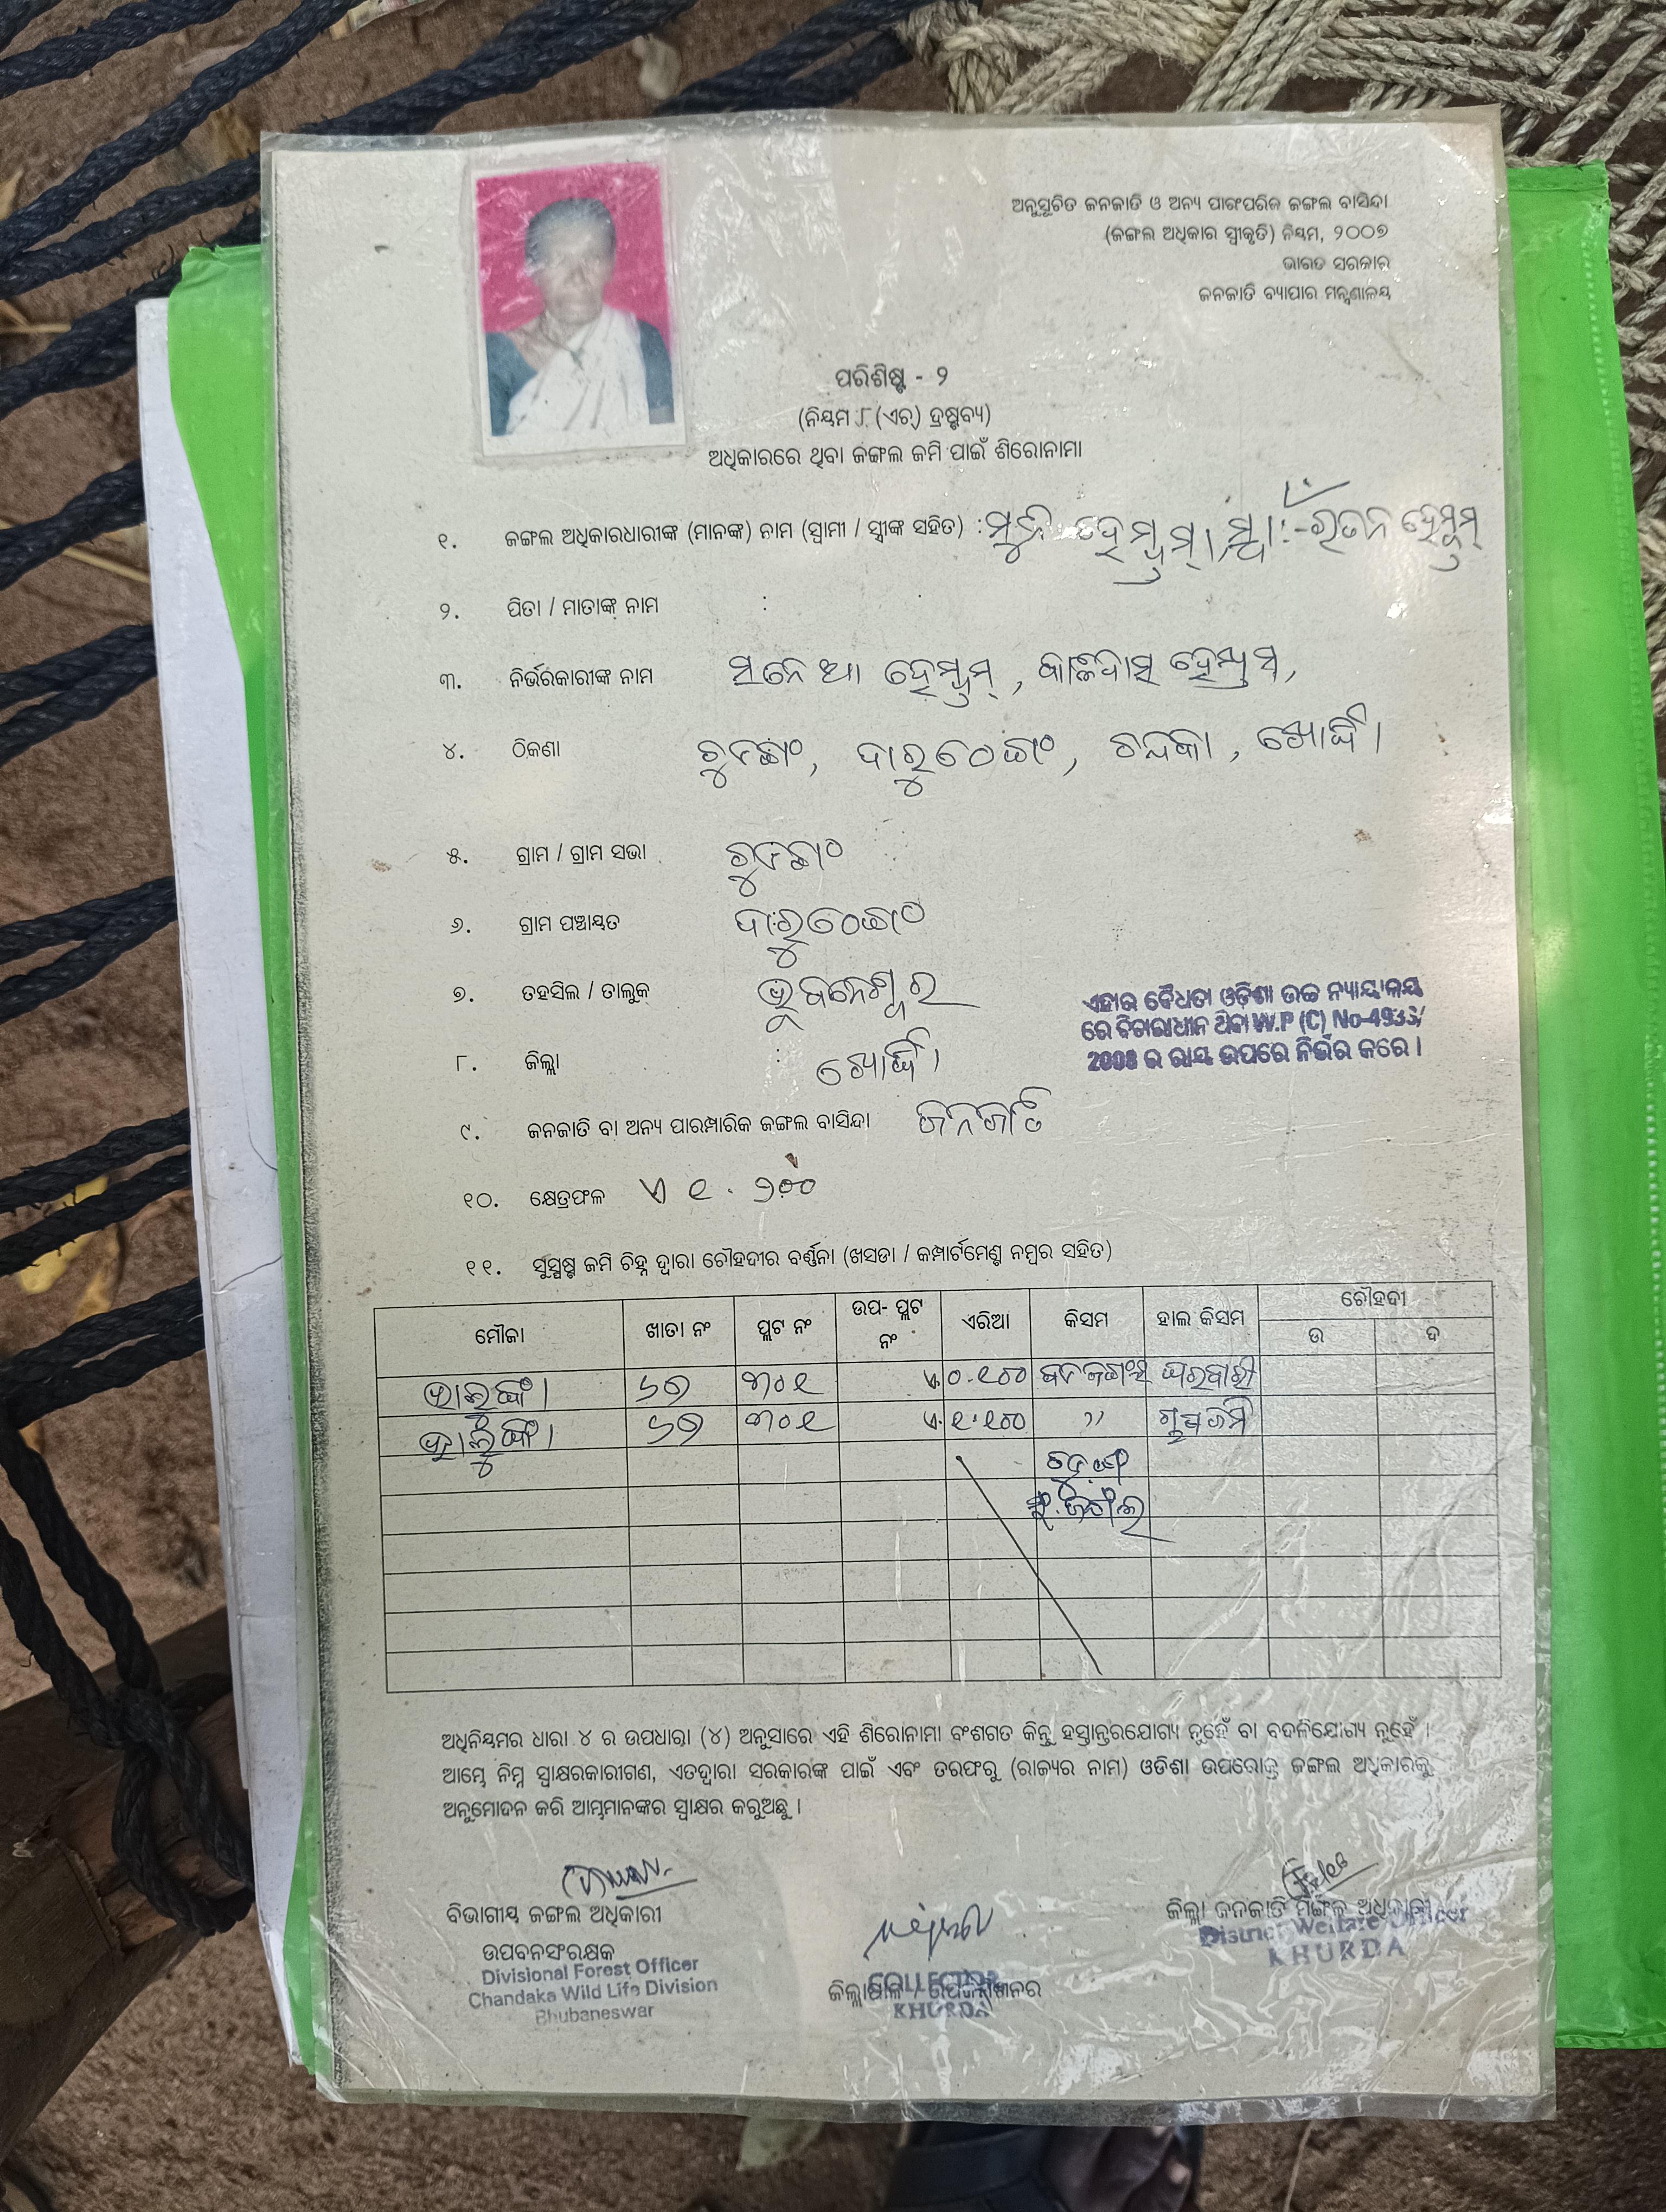 ଅନୁସୂଚିତ ଜନଜାତି ଓ ଅନ୍ୟ ପାରଂପରିକ ଜଙ୍ଗଲ ବାସିନ୍ଦା
(ଜଙ୍ଗଲ ଅଧିକାର ସ୍ୱୀକୃତି) ନିୟମ, ୨୦୦୭
ଭାରତ ସରକାର
ଜନଜାତି ବ୍ୟାପାର ମନ୍ତ୍ରଣାଳୟ
ପରିଶିଷ୍ଟ - ୨
(ନିୟମ ୮ (ଏଚ୍) ଦ୍ରଷ୍ଟବ୍ୟ)
ଅଧିକାରରେ ଥିବା ଜଙ୍ଗଲ ଜମି ପାଇଁ ଶିରୋନାମା
୧. ଜଙ୍ଗଲ ଅଧିକାରଧାରୀଙ୍କ (ମାନଙ୍କ) ନାମ (ସ୍ୱାମୀ / ସ୍ତ୍ରୀଙ୍କ ସହିତ) : ମୁନି ହେମ୍ବ୍ରମ୍ । ସ୍ୱା:-ରତନ ହେମ୍ବ୍ରମ୍
୨. ପିତା / ମାତାଙ୍କ ନାମ :
୩. ନିର୍ଭରକାରୀଙ୍କ ନାମ ହେମ୍ବ୍ରମ୍, ହେମ୍ବ୍ରମ୍,
୪. ଠିକଣା ଦାରୁଠେଙ୍ଗ, ଚନ୍ଦକା, ଖୋର୍ଦ୍ଧା
୫. ଗ୍ରାମ / ଗ୍ରାମ ସଭା
୬. ଗ୍ରାମ ପଞ୍ଚାୟତ ଦାରୁଠେଙ୍ଗ
୭. ତହସିଲ / ତାଲୁକ୍ ଭୁବନେଶ୍ୱର
୮. ଜିଲ୍ଲା : ଖୋର୍ଦ୍ଧା
ଏହାର ବୈଧତା ଓଡ଼ିଶା ଉଚ୍ଚ ନ୍ୟାୟାଳୟ
ରେ ବିଚାରାଧୀନ ଥିବା W.P (C) No-4933/
2008 ର ରାୟ ଉପରେ ନିର୍ଭର କରେ ।
୯. ଜନଜାତି ବା ଅନ୍ୟ ପାରମ୍ପାରିକ ଜଙ୍ଗଲ ବାସିନ୍ଦା ଜନଜାତି
୧୦. କ୍ଷେତ୍ରଫଳ ଏ ୧.୨୦୦
୧୧. ସୁସ୍ପଷ୍ଟ ଜମି ଚିହ୍ନ ଦ୍ୱାରା ଚୌହଦୀର ବର୍ଣ୍ଣନା (ଖସଡା / କମ୍ପାର୍ଟମେଣ୍ଟ ନମ୍ବର ସହିତ)
ମୌଜା ଖାତା ନଂ ପ୍ଲଟ ନଂ ଉପ- ପ୍ଲଟ ନଂ ଏରିଆ କିସମ ହାଲ କିସମ ଚୌହଦୀ
ଉ ଦ
୬୭ ୩୦୧ ଏ.୦.୧୦୦ ଘରବାରୀ
୬୭ ୩୦୧ ଏ.୧.୧୦୦ " ଜମି
ଅଧିନିୟମର ଧାରା ୪ ର ଉପଧାରା (୪) ଅନୁସାରେ ଏହି ଶିରୋନାମା ବଂଶଗତ କିନ୍ତୁ ହସ୍ତାନ୍ତରଯୋଗ୍ୟ ନୁହେଁ ବା ବଦଳିଯୋଗ୍ୟ ନୁହେଁ ।
ଆମ୍ଭେ ନିମ୍ନ ସ୍ୱାକ୍ଷରକାରୀଗଣ, ଏତଦ୍ୱାରା ସରକାରଙ୍କ ପାଇଁ ଏବଂ ତରଫରୁ (ରାଜ୍ୟର ନାମ) ଓଡିଶା ଉପରୋକ୍ତ ଜଙ୍ଗଲ ଅଧିକାରକୁ
ଅନୁମୋଦନ କରି ଆମ୍ଭମାନଙ୍କର ସ୍ୱାକ୍ଷର କରୁଅଛୁ ।
ବିଭାଗୀୟ ଜଙ୍ଗଲ ଅଧିକାରୀ
ଉପବନସଂରକ୍ଷକ
Divisional Forest Officer
Chandaka Wild Life Division
Bhubaneswar
ଜିଲ୍ଲାପାଳ / ଉପକମିଶନର
COLLECTOR
KHURDA
ଜିଲ୍ଲା ଜନଜାତି ମଙ୍ଗଳ ଅଧିକାରୀ
District Welfare Officer
KHURDA